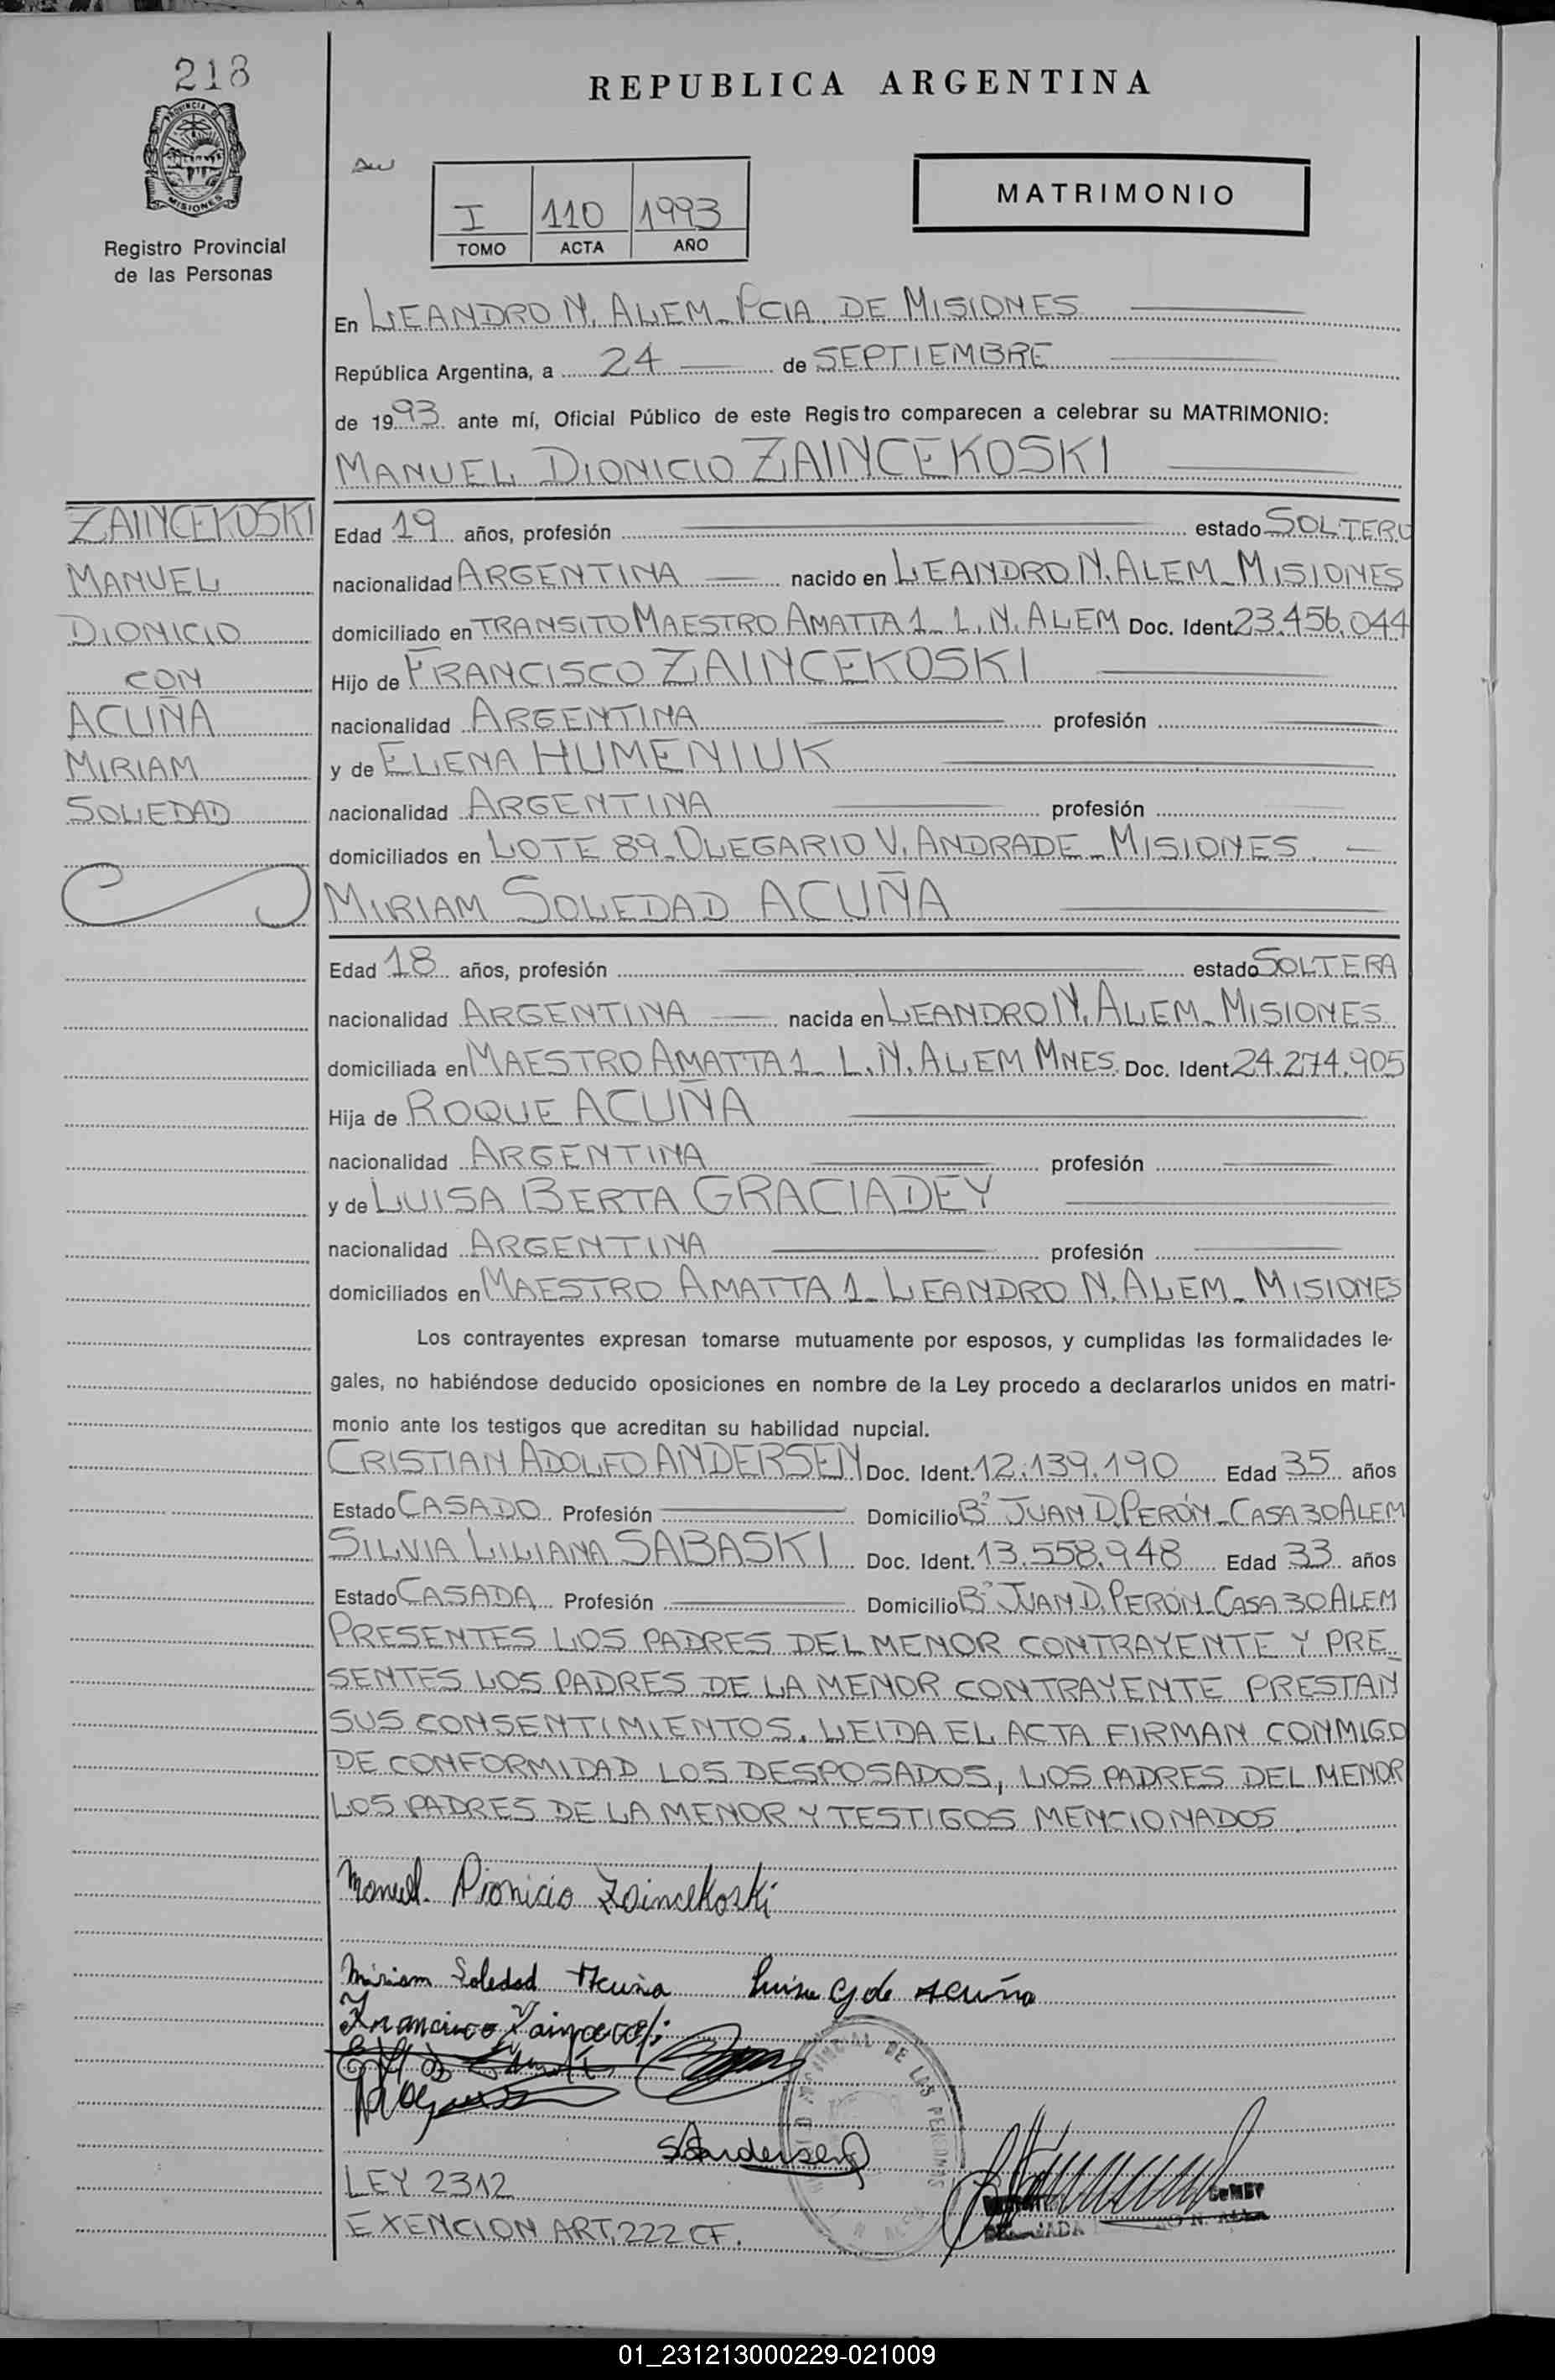 218
PROVINCIA D
MISIONES
Registro Provincial
de las Personas
REPUBLICA ARGENTINA
I 110 1993
TOMO ACTA AÑO
MATRIMONIO
En LEANDRO N. ALEM_ PCIA. DE MISIONES
República Argentina, a 24 de SEPTIEMBRE
de 1993 ante mí, Oficial Público de este Registro comparecen a celebrar su MATRIMONIO:
MANUEL DIONICIO ZAINCEKOSKI
ZAINCEKOSKI
MANUEL
DIONICIO
CON
ACUÑA
MIRIAM
SOLEDAD
Edad 19 años, profesión estado SOLTERO
nacionalidad ARGENTINA nacido en LEANDRO N. ALEM_ MISIONES
domiciliado en TRANSITO MAESTRO AMATTA 1_ L. N. ALEM Doc. Ident. 23.456.044
Hijo de FRANCISCO ZAINCEKOSKI
nacionalidad ARGENTINA profesión
y de ELENA HUMENIUK
nacionalidad ARGENTINA profesión
domiciliados en LOTE 89_ OLEGARIO V. ANDRADE_ MISIONES.
MIRIAM SOLEDAD ACUÑA
Edad 18 años, profesión estado SOLTERA
nacionalidad ARGENTINA nacida en LEANDRO N. ALEM_ MISIONES
domiciliada en MAESTRO AMATTA 1_ L. N. ALEM MNES. Doc. Ident. 24.274.905
Hija de ROQUE ACUÑA
nacionalidad ARGENTINA profesión
y de LUISA BERTA GRACIADEY
nacionalidad ARGENTINA profesión
domiciliados en MAESTRO AMATTA 1_ LEANDRO N. ALEM_ MISIONES
Los contrayentes expresan tomarse mutuamente por esposos, y cumplidas las formalidades le-
gales, no habiéndose deducido oposiciones en nombre de la Ley procedo a declararlos unidos en matri-
monio ante los testigos que acreditan su habilidad nupcial.
CRISTIAN ADOLFO ANDERSEN Doc. Ident. 12.139.190 Edad 35 años
Estado CASADO Profesión Domicilio Bº JUAN D. PERÓN_ CASA 30 ALEM
SILVIA LILIANA SABASKI Doc. Ident. 13.558.948 Edad 33 años
Estado CASADA Profesión Domicilio Bº JUAN D. PERÓN_ CASA 30 ALEM
PRESENTES LOS PADRES DEL MENOR CONTRAYENTE Y PRE_
SENTES LOS PADRES DE LA MENOR CONTRAYENTE PRESTAN
SUS CONSENTIMIENTOS. LEIDA EL ACTA FIRMAN CONMIGO
DE CONFORMIDAD LOS DESPOSADOS, LOS PADRES DEL MENOR
LOS PADRES DE LA MENOR Y TESTIGOS MENCIONADOS
Manuel Dionicio Zaincekoski
Miriam Soledad Acuña Luisa G de Acuña
Francisco
SAndersen
DE LAS PERSONAS
LEY 2312
EXENCION ART. 222 CF.
01_231213000229-021009